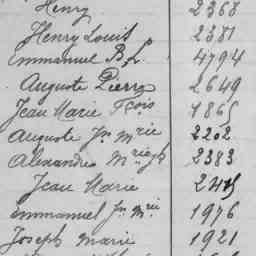 Henry 2368
Henry Louis 2381
Emmanuel B. L. 4794
Auguste Pierre 2649
Jean Marie Fçois 1865
Auguste Jn Mrie 2202
Alexandre Mrieph 2383
Jean Marie
Emmanuel Jn Mrie 1976
Joseph Marie 1921